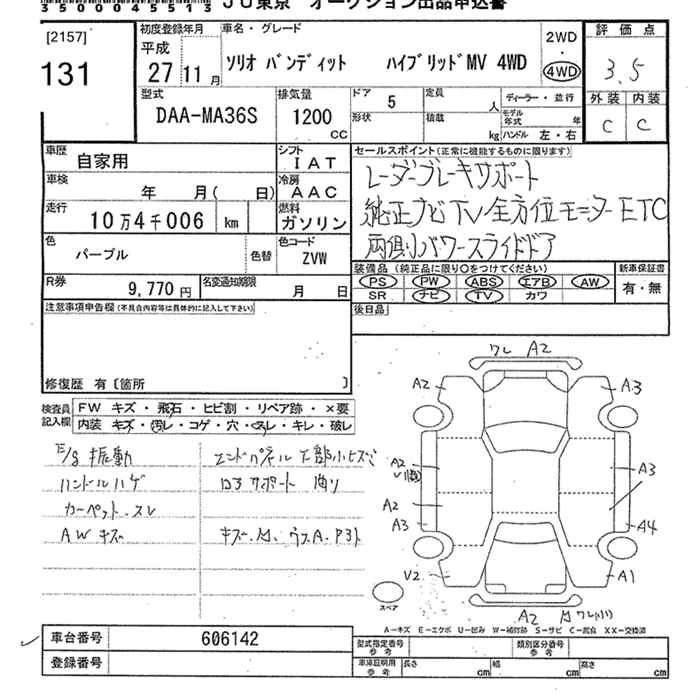 35000045513 JU東京 オークション出品申込書
[2157]
131
初度登録年月
平成
27 11 月
車名・グレード
ソリオ バンディット ハイブリッドMV 4WD
2WD
・
4WD
評価点
3.5
外装 内装
C C
型式
DAA-MA36S
排気量
1200
CC
ドア
5
形状
定員
人
積載
kg
ディーラー・並行
モデル年式 年
ハンドル 左・右
車歴
自家用
シフト
IAT
車検
年 月( 日)
冷房
AAC
走行
10万4千006 km
燃料
ガソリン
色
パープル
色替
色コード
ZVW
R券
9,770 円
名変通知期限
月 日
セールスポイント(正常に機能するものに限ります)
レーダーブレーキサポート
純正ナビTV全方位モニターETC
両側パワースライドドア
装備品 (純正品に限り○をつけてください)
PS PW ABS エアB AW
SR ナビ TV カワ
新車保証書
有・無
後日品
注意事項申告欄(不具合内容等は具体的に記入して下さい)
修復歴 有〔箇所 〕
検査員記入欄
FW キズ・飛石・ヒビ割・リペア跡・×要
内装 キズ・汚レ・コゲ・穴・スレ・キレ・破レ
E/g 振動
ハンドルハゲ
カーペット スレ
AW キズ
エンドパネル下部小ヒズミ
ロアサポート 曲リ
ワレ A2
A2 A3
A2
A3
A2
A3 A4
V2 A1
A2
スペア
A-キズ E-エクボ U-凹み W-補修跡 S-サビ C-腐食 XX-交換済
車台番号
606142
登録番号
型式指定番号
参考
類別区分番号
参考
車庫証明用
参考
長さ cm
幅 cm
高さ cm